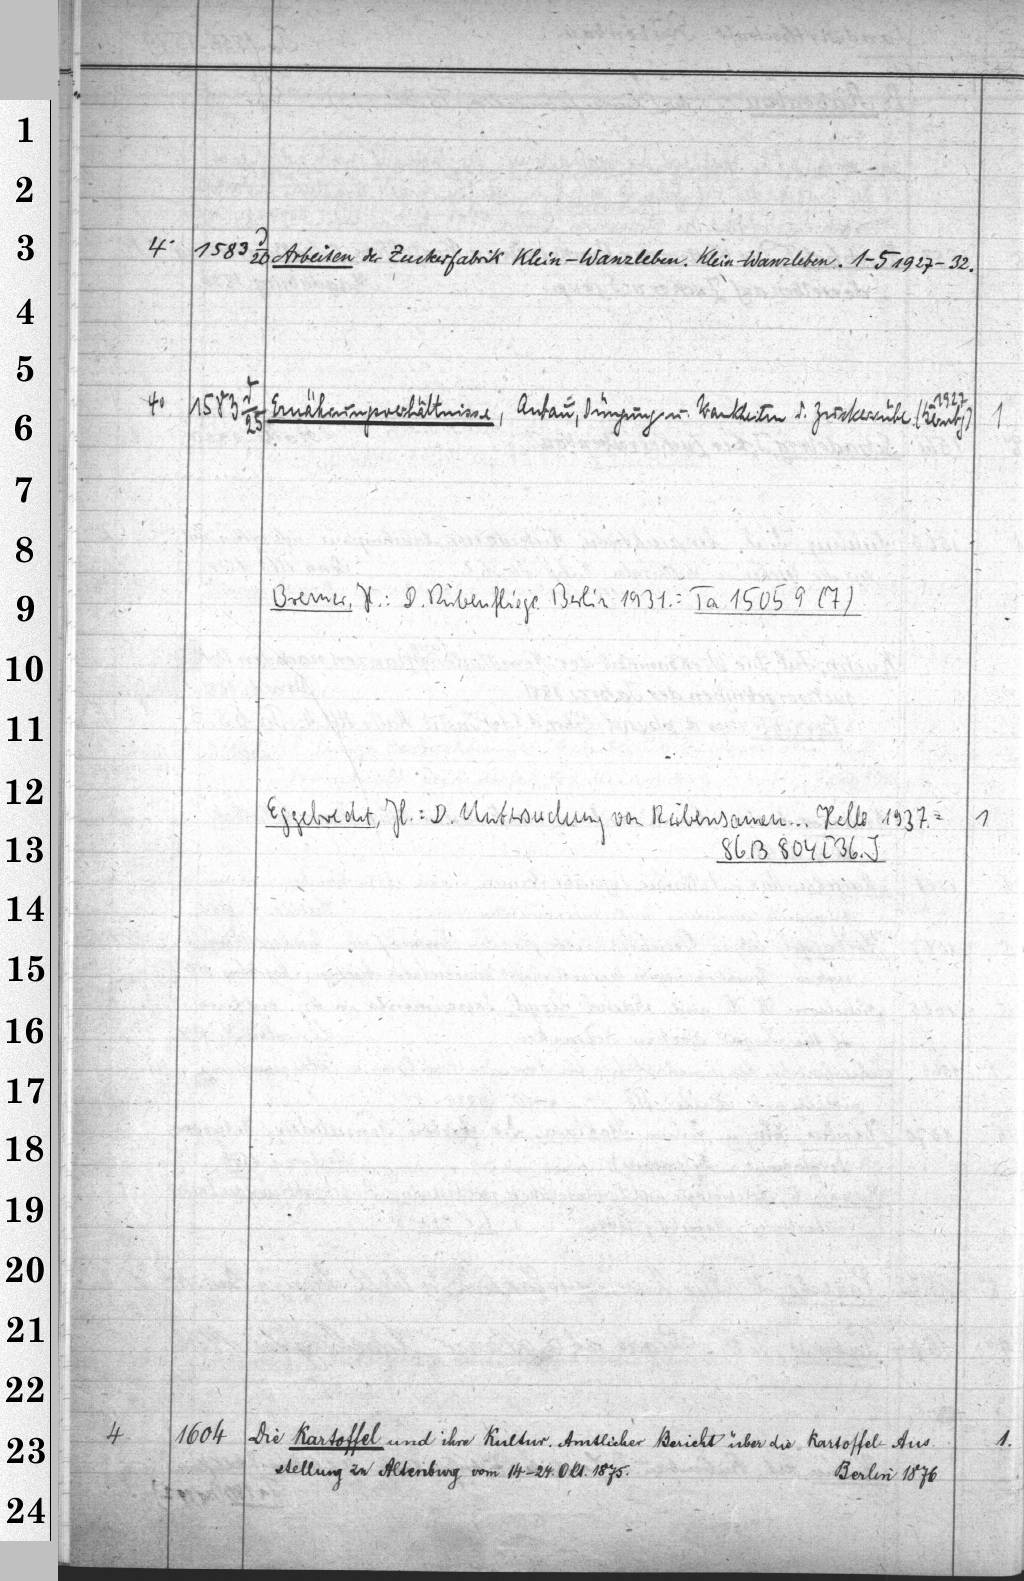 1
2
3
4° 1583 d/20 Arbeiten der Zuckerfabrik Klein-Wanzleben. Klein-Wanzleben. 1-5 1927-32.
4
5
6
4° 1583 d/25 Ernährungsverhältnisse, Anbau, Düngung u. Krankheiten d. Zuckerrübe. 1927 1
7
8
9
Bremer, H.: D. Rübenfliege. Berlin 1931.= Ta 1505 9 (7)
10
11
12
Eggebrecht, H.: D. Untersuchung von Rübensamen... Halle 1937.= 1
13
86 B 804 [36.]
14
15
16
17
18
19
20
21
22
23
4 1604 Die Kartoffel und ihre Kultur. Amtlicher Bericht über die Kartoffel-Aus 1.
stellung zu Altenburg vom 14-24. Okt. 1875. Berlin 1876
24